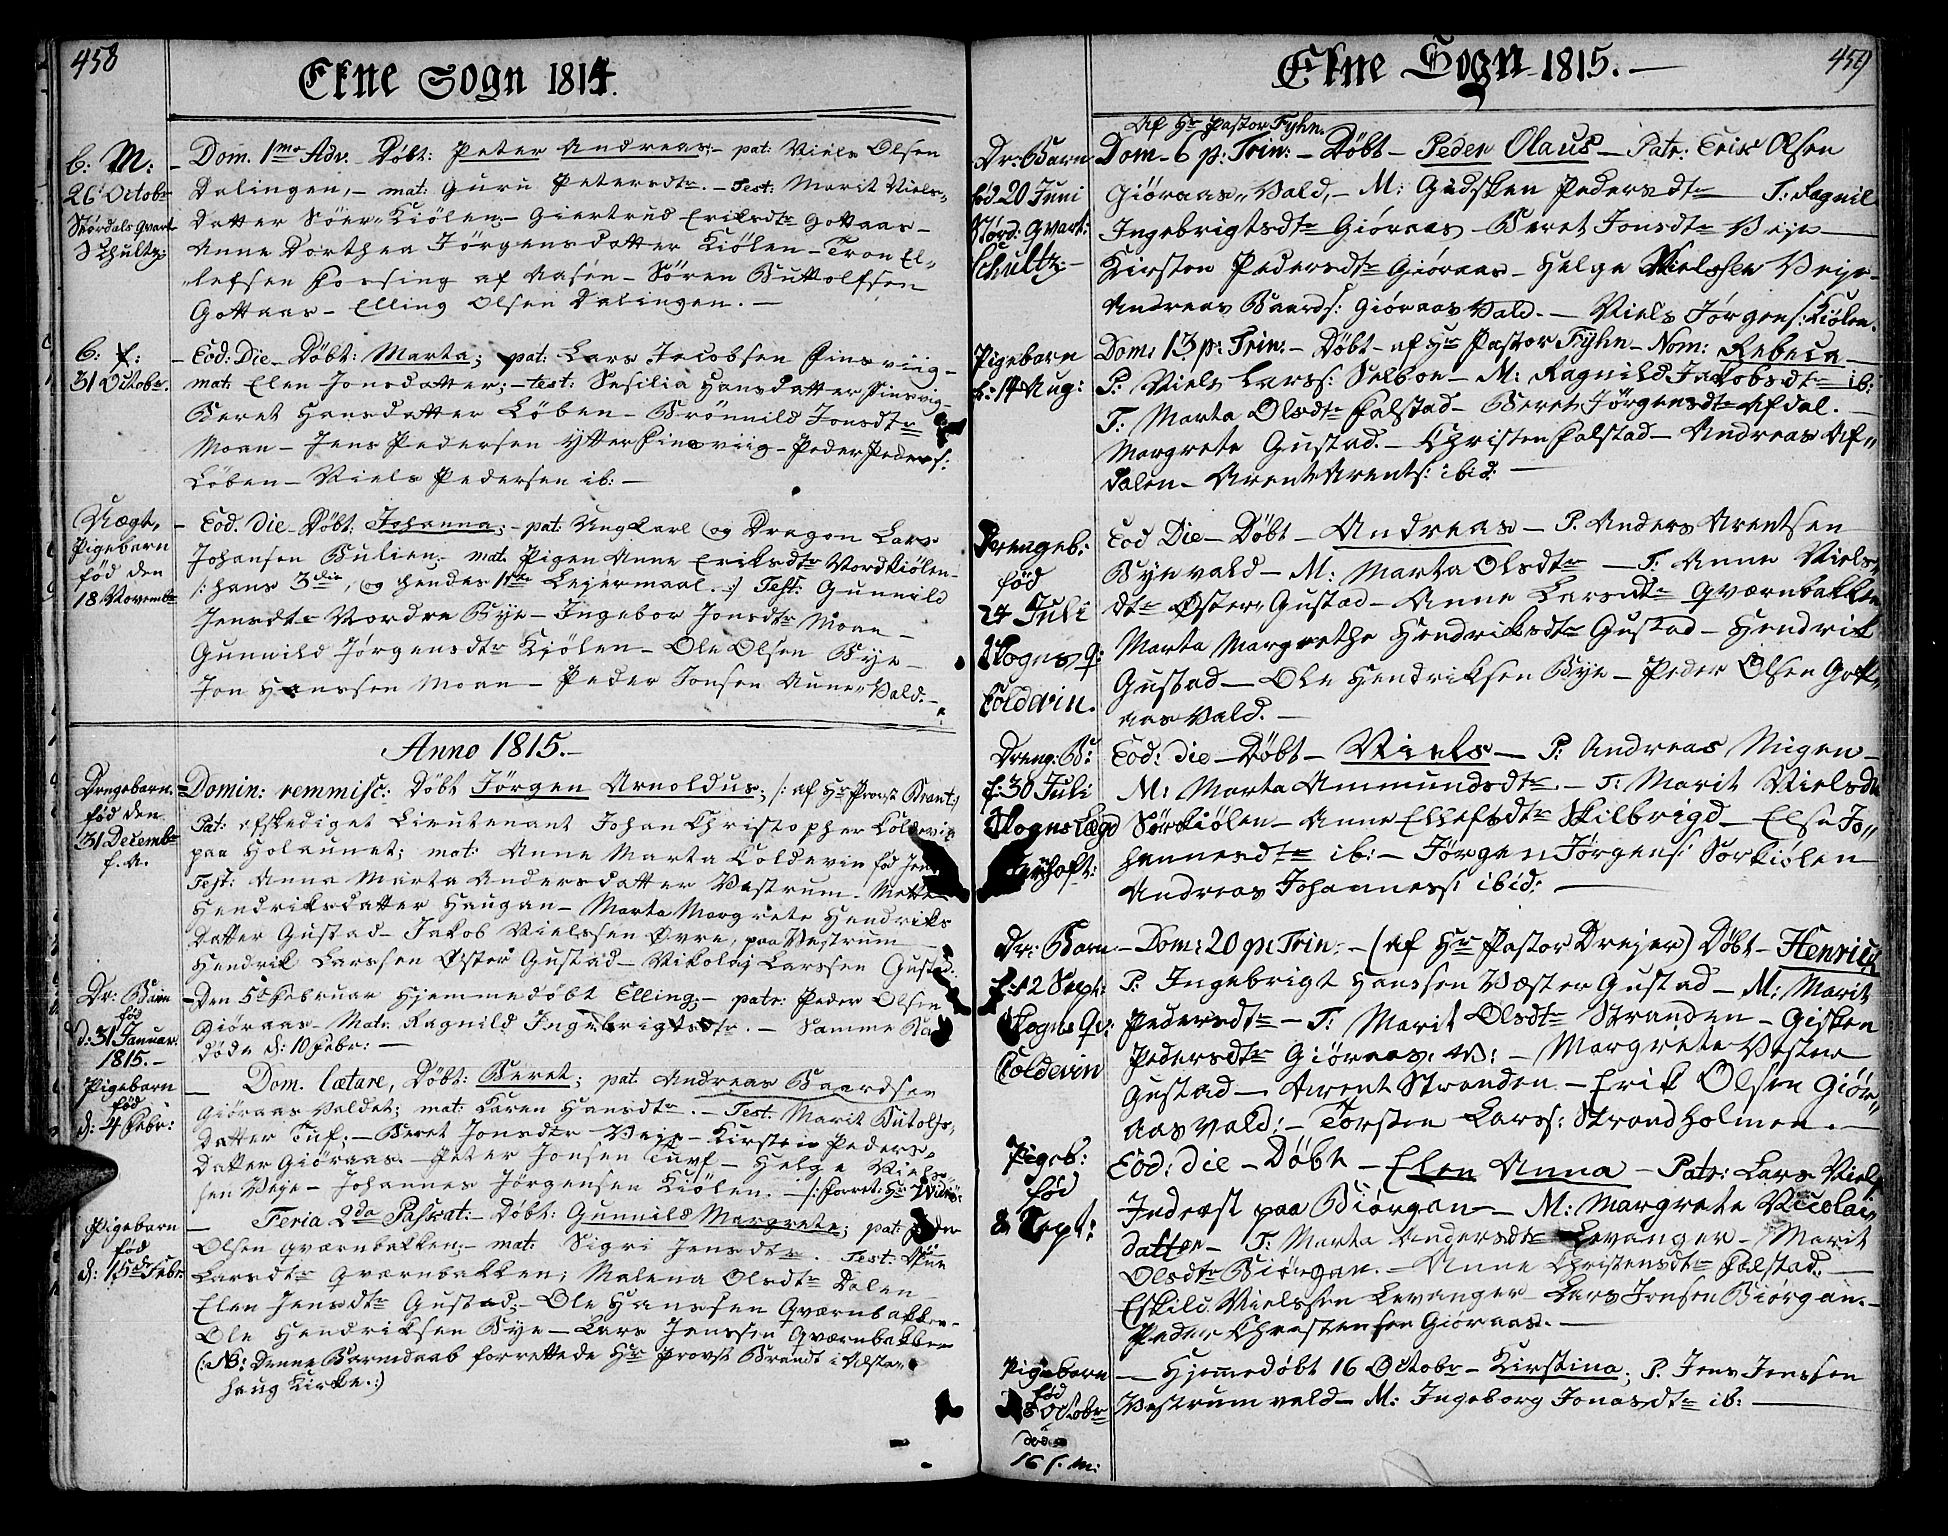 458
Ekne Sogn 1814.
B: M:
26 Octobr
Størdals Qvart
Schultz:
Dom. 1mo Adv. Døbt: Peter Andreas; - pat: Niels Olsen
Dalingen, - mat: Guru Petersdtr. - Test: Marit Niels-
datter Søer-Kiølen, - Giertrud Eriksdtr Gottaas -
Anne Dorthea Jørgensdatter Kiølen - Tron El-
lefsen Forsing af Aasen - Søren Buttolfsen
Gottaas - Elling Olsen Dalingen. -
B: f:
31 Octobr.
Eod: Die - Døbt: Marta; pat: Lars Jacobsen Finsviig -
mat: Elen Jonsdatter; - test: Sesilia Hansdatter Finsvig -
Beret Hansdatter Løben - Brønnild Jonsdtr
Moan - Jens Pedersen Ytter Finsviig - Peder Peders:
Løben - Niels Pedersen ib: -
Uægt,
Pigebarn
fød den
18 Novembr
Eod. Die - Døbt: Johanna; - pat: Ungkarl og Dragon Lars
Johansen Bulien, - mat: Pigen Anne Eriksdtr Nordkiølen -
/: hans 3die, og hendes 1ste Leiermaal. :/ Test: Gunnild
Jensdtr Nordre Bye - Ingebor Jonsdtr Moan -
Gunnild Jørgensdtr Kiølen - Ole Olsen Bye -
Jon Hanssen Moan - Peder Jonsen Aune-Vald. -
Anno 1815. -
Drengebarn.
fød den
31 Decembr
f. A.
Domin: remmisc: Døbt Jørgen Arnoldus; /: af Hr Provst Brant :/
Pat: afskediget Lieutenant Johan Christopher Coldevin
paa Holaunet; mat: Anne Marta Coldevin fød
Test: Anna Marta Andersdatter Vestrum - Mette
Hendriksdatter Haugan - Marta Margrete Hendriks
datter Gustad - Jakob Nielssen Øvre, paa Vestrum -
Hendrik Larssen Øster Gustad - Nikolaj Larssen Gustad.
Dr: Barn
fød
d: 31 Januar.
1815. -
Den 5t Februar Hjemmedøbt Elling; - patr: Peder Olsen
Giøraas - Matr. Ragnild Ingebrigtsdtr. - Samme Ba
døde d: 10 Febr: -
Pigebarn
fød
d: 4 Febr:
Dom. Lætare, Døbt: Beret; pat. Andreas Baardsen
Giøraas Valdet; mat: Karen Hansdtr. - Test. Marit Butolfs-
datter Tuf. - Beret Jonsdtr Veje - Kirsten Peders-
datter Giøraas. - Peter Jonsen Tuvf - Helge Niels-
sen Veje - Johannes Jørgensen Kiølen. -
Pigebarn
fød
d: 15de Febr.
Feria 2da Paskat: - Døbt: Gunnild Margrete; pat: Peder
Olsen Qværnbakken; - mat: Sigri Jensdtr. Test:
Larsdtr Qværnbakken; Malena Olsdtr Dalen
Elen Jensdtr Gustad; - Ole Hanssen Qværnbakken -
Ole Hendriksen Bye - Lars Jenssen Qværnbakken
(: NB: Denne Barnedaab forrettede Hr Provst Brandt i Alsta-
haug Kirke. :)
459
Ekne Sogn 1815. -
Af Hr Pastor Fyhn.
Dr: Barn
fød 20 Juni
Størd: Qvart:
Schultz. -
Dom. 6 p: Trin: - Døbt - Peder Olaus - Patr: Eric Olsen
Giøraas-Vald, - M: Gidsken Pedersdtr - T: Ragnil
Ingebrigtsdtr Giøraas - Beret Jonsdtr Veje -
Kirsten Pedersdtr Giøraas - Helge Nielssen Veije -
Andreas Baards: Giøraas Vald. - Niels Jørgens: Kiølen.
Pigebarn
f: 14 Aug:
Dom: 13 p: Trin: - Døbt - af Hr Pastor Fyhn - Nom: Rebeca -
P: Niels Larss: Selboe - M: Ragnild Jakobsdtr ib:
T: Marta Olsdtr Falstad - Beret Jørgensdtr Afdal. -
Margrete Gustad. - Christen Falstad - Andreas Af-
dalen - Arent Arents: ibid: -
Drengeb:
fød
24 Juli
Skogns Q:
Coldevin.
Eod Die - Døbt - Andreas - P: Anders Arentsen
Byevald - M: Marta Olsdtr - T: Anne Niels-
dtr Øster-Gustad - Anne Larsdtr Qværnbakken
Marta Margrethe Hendriksdtr Gustad - Hendrik
Gustad - Ole Hendriksen Bye - Peder Olsen Gott-
aas Vald. -
Dreng: B:
f: 30 Juli
Skogns Lægd
Eod: die - Døbt - Niels - P: Andreas Nigen -
M: Marta Ammundsdtr. - T: Marit Nielsdtr
Sørkiølen - Anne Ellefsdtr Skilbrigd - Else Jo-
hannesdtr ib: - Jørgen Jørgens: Sørkiølen
Andreas Johanness: ibid: -
Dr: Barn
f: 12 Sept:
Skogns Qv:
Coldevin
Dom: 20 p: Trin: - (af Hr Pastor Drejer) Døbt - Henrich
P: Ingebrigt Hanssen Væster Gustad - M: Marit
Pedersdtr - T: Marit Olsdtr Stranden - Gisken
Pedersdtr Giøraas: V: - Margrete Vester
Gustad - Arent Stranden - Erik Olsen Giør-
aasvald: - Torsten Larss: Strandholmen. -
Pigeb:
fød
8 Sept:
Eod: die - Døbt - Elen Anna - Patr: Lars Niels
Inderst paa Biørgan - M: Margrete Nicolai-
datter - T: Marta Andersdtr Levanger - Marit
Olsdtr Biørgan. - Anne Christensdtr Falstad. -
Eskild Nielssen Levanger - Lars Jonsen Biørgan. -
Peder Christensen Giøraas. -
Pigebarn
fød
8 Octobr
død
16 s. m:
Hjemmedøbt 16 Octobr - Kirstina; P. Jens Jenssen
Vestrumvald - M: Ingeborg Jonasdtr ib: -